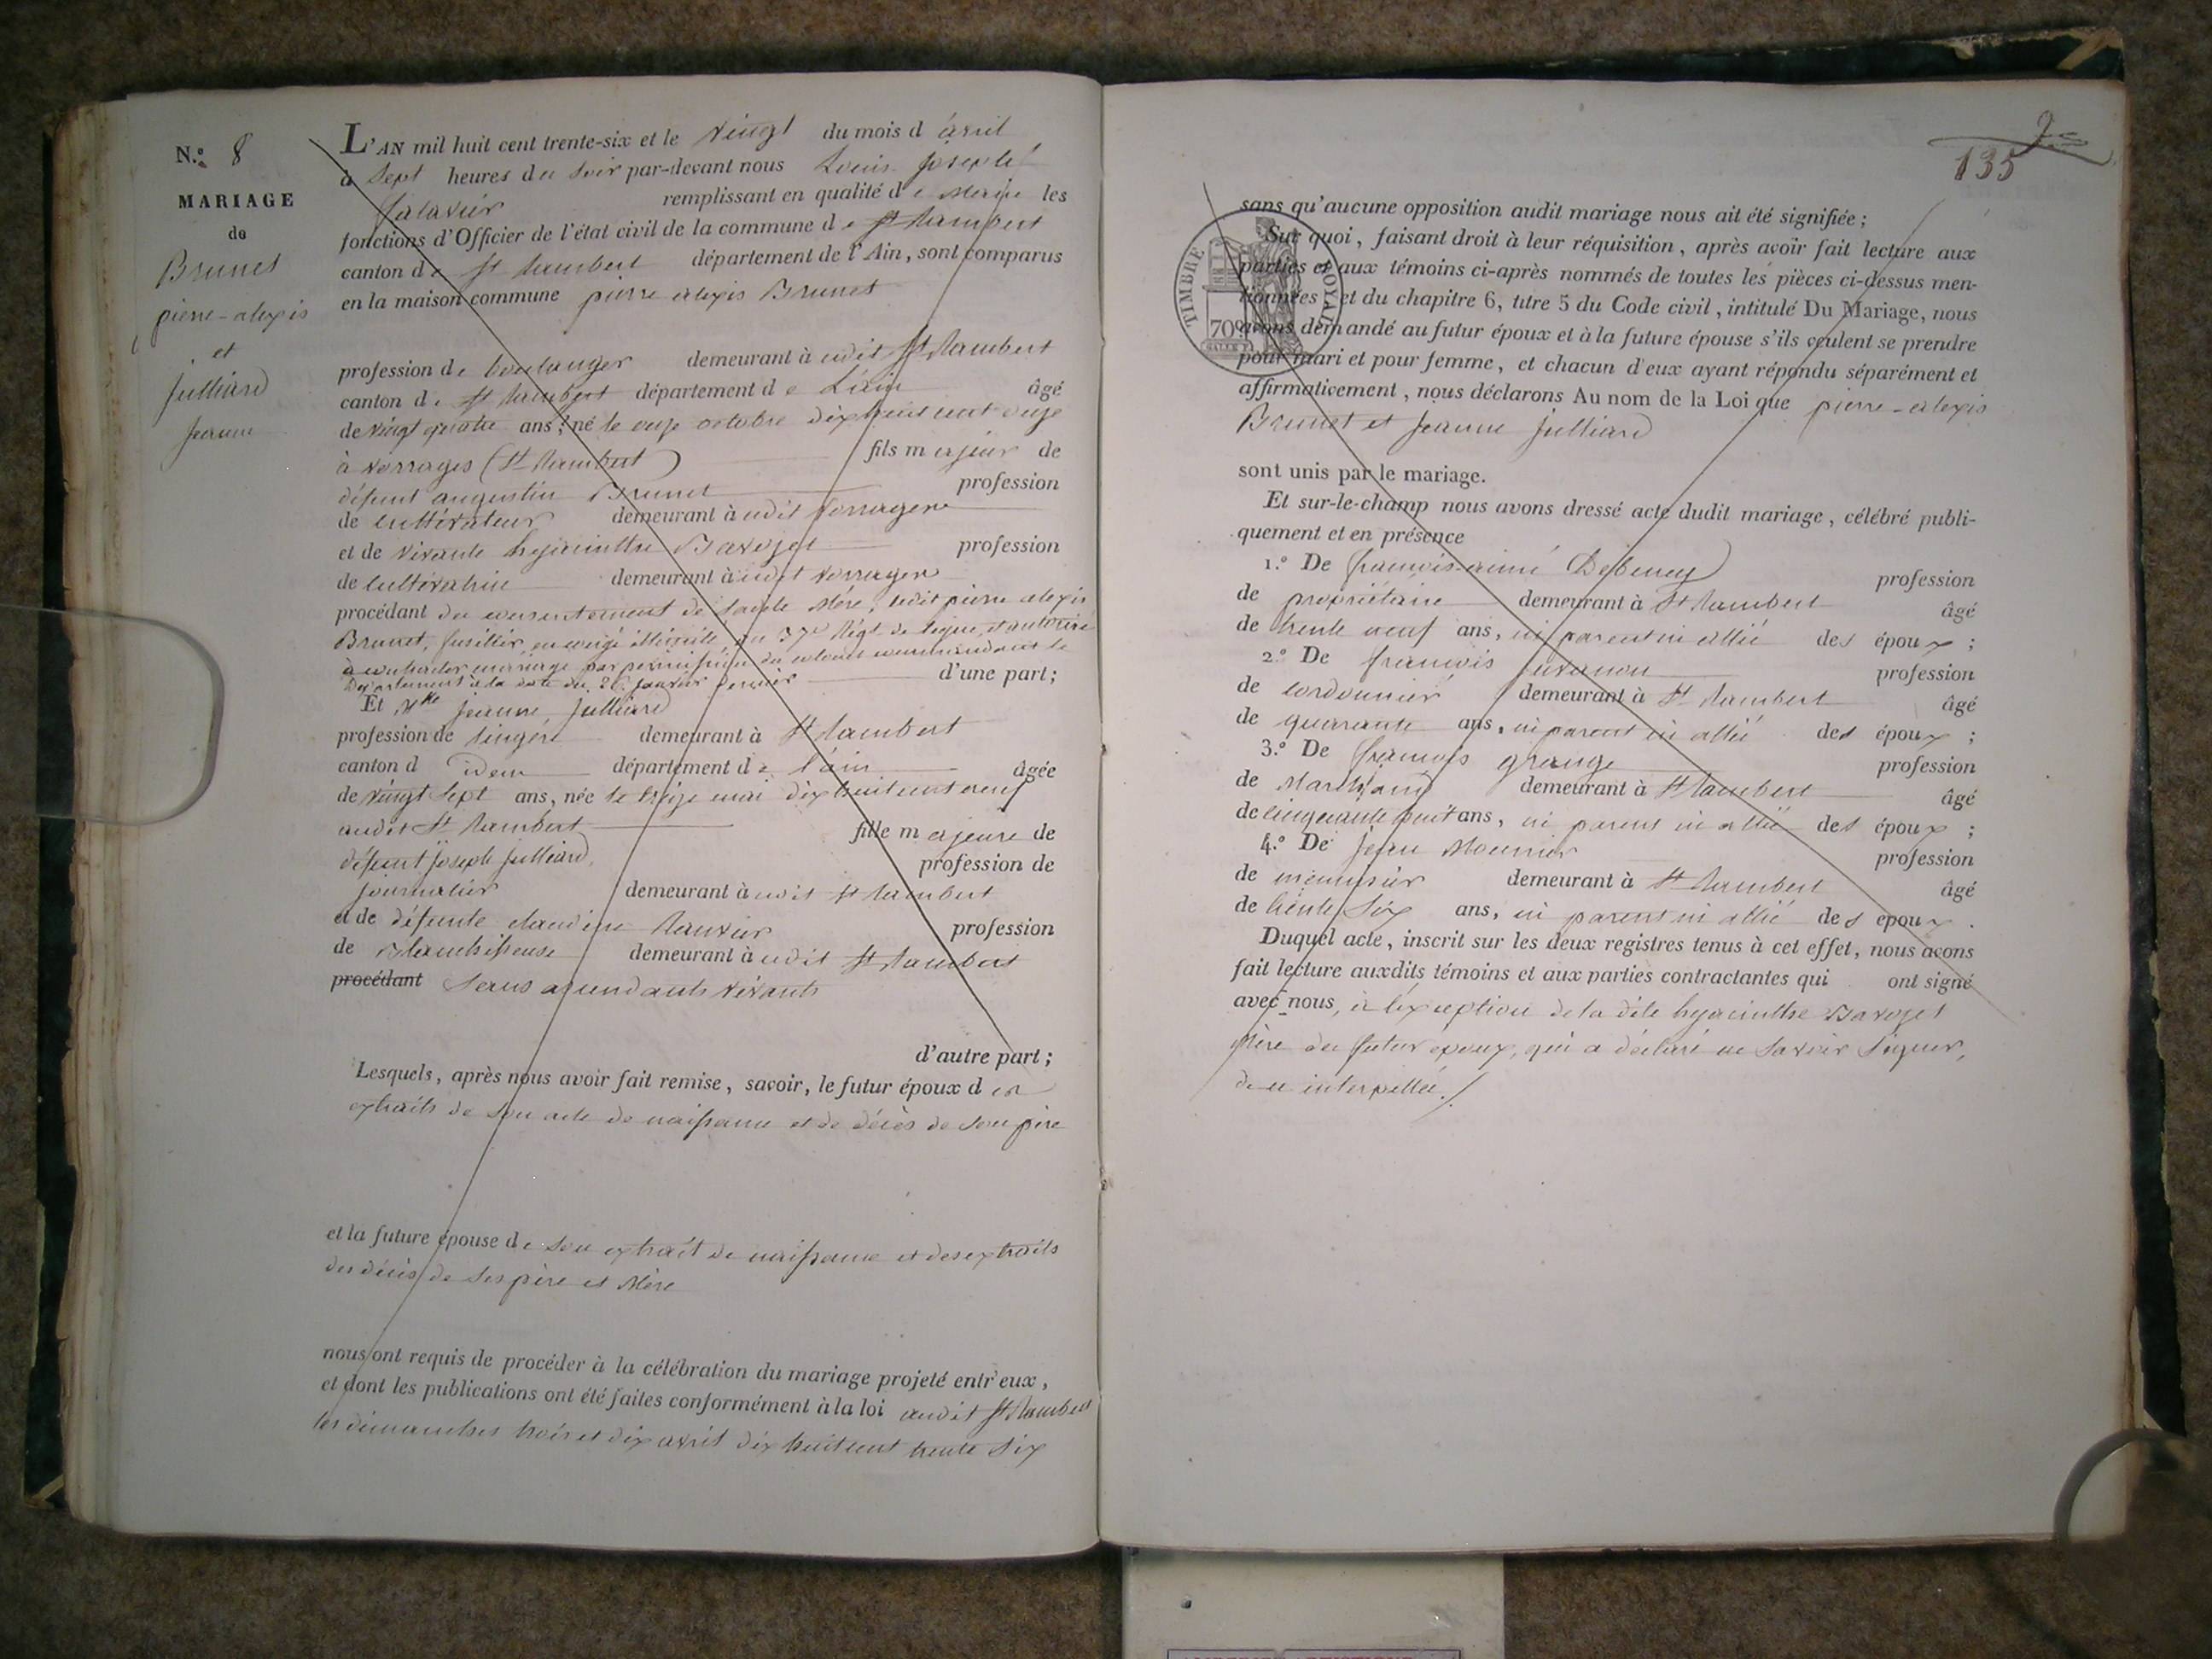 N.º 8
MARIAGE
de
Brunet
pierre-alexis
et
Julliard
Jeanne
L'AN mil huit cent trente-six et le vingt du mois d'avril
à Sept heures du Soir par-devant nous Louis Joseph
remplissant en qualité de Maire les
fonctions d'Officier de l'état civil de la commune de St Rambert
canton de St Rambert département de l'Ain, sont comparus
en la maison commune pierre alexis Brunet
profession de boulanger demeurant à udit St Rambert
canton de St Rambert département de L'ain âgé
de vingt quatre ans, né le onze octobre dix huit cent onze
à vorrages (St Rambert) fils majeur de
défunt augustin Brunet profession
de cultivateur demeurant à udit vorrages
et de vivante hyacinthe Savoget profession
de cultivatrice demeurant à udit vorrages
procédant du consentement de sa dite Mère, ledit pierre alexis
Brunet, fusillier, en congé illimité du 37e Régt de ligne, et autorisé
à contracter mariage par permission du colonel commandant le
Département à la date du 26 Janvier dernier d'une part;
Et Mlle Jeanne Julliard
profession de lingère demeurant à St Rambert
canton d idem département de l'ain âgée
de vingt Sept ans, née le treize mai dix huit cent neuf
audit St Rambert fille majeure de
défunt Joseph Julliard, profession de
journalier demeurant à udit St Rambert
et de défunte claudine Rauvier profession
de Blanchisseuse demeurant à udit St Rambert
procédant Sans ascendants vivants
d'autre part;
Lesquels, après nous avoir fait remise, savoir, le futur époux des
extraits de son acte de naissance et de décès de son père
et la future épouse de son extrait de naissance et des extraits
des décès de ses père et Mère
nous ont requis de procéder à la célébration du mariage projeté entr'eux,
et dont les publications ont été faites conformément à la loi audit St Rambert
les dimanches trois et dix avril dix huit cent trente Six
135
TIMBRE ROYAL
70c
sans qu'aucune opposition audit mariage nous ait été signifiée;
Sur quoi, faisant droit à leur réquisition, après avoir fait lecture aux
parties et aux témoins ci-après nommés de toutes les pièces ci-dessus men-
tionnées et du chapitre 6, titre 5 du Code civil, intitulé Du Mariage, nous
avons demandé au futur époux et à la future épouse s'ils veulent se prendre
pour mari et pour femme, et chacun d'eux ayant répondu séparément et
affirmativement, nous déclarons Au nom de la Loi que pierre-alexis
Brunet et Jeanne Julliard
sont unis par le mariage.
Et sur-le-champ nous avons dressé acte dudit mariage, célébré publi-
quement et en présence
1.º De françois-aimé Debeney profession
de propriétaire demeurant à St Rambert âgé
de trente neuf ans, ni parent ni allié des époux;
2.º De françois Juvanon profession
de cordonnier demeurant à St Rambert âgé
de quarante ans, ni parent ni allié des époux;
3.º De françois grange profession
de Marchand demeurant à St Rambert âgé
de cinquante huit ans, ni parent ni allié des époux;
4.º De Jean Mounier profession
de menuisier demeurant à St Rambert âgé
de trente Six ans, ni parent ni allié des époux.
Duquel acte, inscrit sur les deux registres tenus à cet effet, nous avons
fait lecture auxdits témoins et aux parties contractantes qui ont signé
avec nous, à l'exception de la dite hyacinthe Savoget
Mère du futur époux, qui a déclaré ne Savoir Signer,
de ce interpellée./